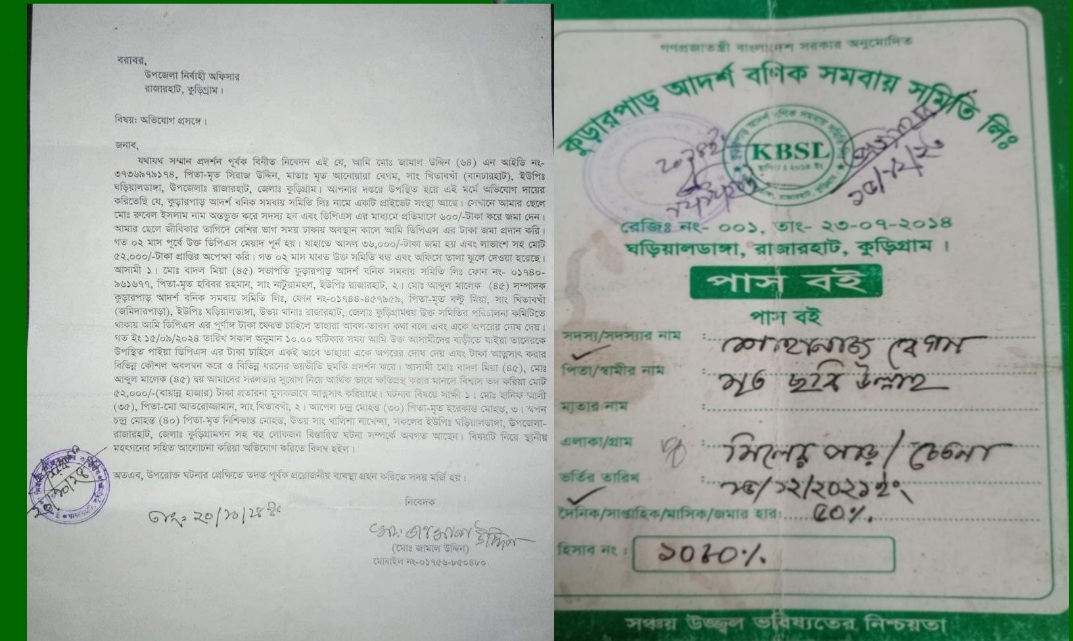 বরাবর,
উপজেলা নির্বাহী অফিসার
রাজারহাট, কুড়িগ্রাম।
বিষয়: অভিযোগ প্রসঙ্গে।
জনাব,
যথাযথ সম্মান প্রদর্শন পূর্বক বিনীত নিবেদন এই যে, আমি মোঃ জামাল উদ্দিন (৬৪) এন আইডি নং-
৩৭৩৬৯৭৯১৭৪, পিতা-মৃত সিরাজ উদ্দিন, মাতাঃ মৃত আনোয়ারা বেগম, সাং খিতাবখাঁ (বানচারহাট), ইউপিঃ
ঘড়িয়ালডাঙ্গা, উপজেলাঃ রাজারহাট, জেলাঃ কুড়িগ্রাম। আপনার দপ্তরে উপস্থিত হয়ে এই মর্মে অভিযোগ দায়ের
করিতেছি যে, কুড়ারপাড় আদর্শ বনিক সমবায় সমিতি লিঃ নামে একটি প্রাইভেট সংস্থা আছে। সেখানে আমার ছেলে
মোঃ রুবেল ইসলাম নাম অন্তভুক্ত করে সদস্য হন এবং ডিপিএস এর মাধ্যমে প্রতিমাসে ৬০০/-টাকা করে জমা দেন।
আমার ছেলে জীবিকার তাগিদে বেশির ভাগ সময় ঢাকায় অবস্থান কালে আমি ডিপিএস এর টাকা জমা প্রদান করি।
গত ০২ মাস পূর্বে উক্ত ডিপিএস মেয়াদ পূর্ন হয়। যাহাতে আসল ৩৬,০০০/-টাকা জমা হয় এবং লাভাংশ সহ মোট
৫২,০০০/-টাকা প্রাপ্তির অপেক্ষা করি। গত ০২ মাস যাবত উক্ত সমিতি বন্ধ এবং অফিসে তালা ঝুলে দেওয়া হয়েছে।
আসামী ১। মোঃ বাদল মিয়া (৪৫) সভাপতি কুড়ারপাড় আদর্শ বনিক সমবায় সমিতি লিঃ ফোন নং- ০১৭৪০-
৯৬১৬৭৭, পিতা-মৃত হবিবর রহমান, সাং নাটুয়ামহল, ইউপিঃ রাজারহাট, ২। মোঃ আব্দুল মালেক (৪৫) সম্পাদক
কুড়ারপাড় আদর্শ বনিক সমবায় সমিতি লিঃ, ফোন নং-০১৭৪৪-৪৫৭৯৫৯, পিতা-মৃত বল্টু মিয়া, সাং খিতাবখাঁ
(জমিদারপাড়া), ইউপিঃ ঘড়িয়ালডাঙ্গা, উভয় থানাঃ রাজারহাট, জেলাঃ কুড়িগ্রামদ্বয় উক্ত সমিতির পরিচালনা কমিটিতে
থাকায় আমি ডিপিএস এর পূর্ণাঙ্গ টাকা ফেরত চাহিলে তাহারা আবল-তাবল কথা বলে এবং একে অপরের দোষ দেয়।
গত ইং ১৫/০৯/২০২৪ তারিখ সকাল অনুমান ১০.০০ ঘটিকার সময় আমি উক্ত আসামীদের বাড়ীতে যাইয়া তাদেরকে
উপস্থিত পাইয়া ডিপিএস এর টাকা চাহিলে একই ভাবে তাহারা একে অপরের দোষ দেয় এবং টাকা আত্নসাৎ করার
বিভিন্ন কৌশল অবলম্বন করে ও বিভিন্ন ধরনের ভয়ভীতি হুমকি প্রদর্শন করে। আসামী মোঃ বাদল মিয়া (৪৫), মোঃ
আব্দুল মালেক (৪৫) দ্বয় আমাদের সরলতার সুযোগ নিয়ে আর্থিক ভাবে ক্ষতিগ্রস্থ করার মানসে বিশ্বাস ভঙ্গ করিয়া মোট
৫২,০০০/-(বায়ান্ন হাজার) টাকা প্রতারনা মুলকভাবে আত্নসাৎ করিয়াছে। ঘটনার বিষয়ে সাক্ষী ১। মোঃ হানিফ আলী
(৩৫), পিতা-মো আতরোজ্জামান, সাং খিতাবখাঁ, ২। আপেল চন্দ্র মোহন্ত (৩০) পিতা-মৃত হরেকান্ত মোহন্ত, ৩। স্বপন
চন্দ্র মোহন্ত (৪০) পিতা-মৃত নিশিকান্ত মোহন্ত, উভয় সাং খালিশা নাখেন্দা, সকলের ইউপিঃ ঘড়িয়ালডাঙ্গা, উপজেলা-
রাজারহাট, জেলাঃ কুড়িগ্রামগন সহ বহু লোকজন বিস্তারিত ঘটনা সম্পর্কে অবগত আছেন। বিষয়টি নিয়ে স্থানীয়
মহৎগনের সহিত আলোচনা করিয়া অভিযোগ করিতে বিলম্ব হইল।
অতএব, উপরোক্ত ঘটনার প্রেক্ষিতে তদন্ত পূর্বক প্রয়োজনীয় ব্যবস্থা গ্রহন করিতে সদয় মর্জি হয়।
নিবেদক
তাং- ২০/১০/২৪ ইং
মোঃ জামাল উদ্দিন
(মোঃ জামাল উদ্দিন)
মোবাইল নং-০১৭৫৬-৮৫০৪৮০
গণপ্রজাতন্ত্রী বাংলাদেশ সরকার অনুমোদিত
কুড়ারপাড় আদর্শ বণিক সমবায় সমিতি লিঃ
KBSL
রেজিঃ নং- ০০১, তাং- ২৩-০৭-২০১৪
ঘড়িয়ালডাঙ্গা, রাজারহাট, কুড়িগ্রাম।
পাস বই
পাস বই
সদস্য/সদস্যার নাম : শাহানাজ বেগম
পিতা/স্বামীর নাম : মৃত ছবি উল্লাহ
মাতার নাম :
এলাকা/গ্রাম :
ভর্তির তারিখ : ২৬/১২/২০২১ ইং
দৈনিক/সাপ্তাহিক/মাসিক/জমার হার: ৫০%
হিসাব নং : ১০৮০%
সঞ্চয় উজ্জ্বল ভবিষ্যতের নিশ্চয়তা